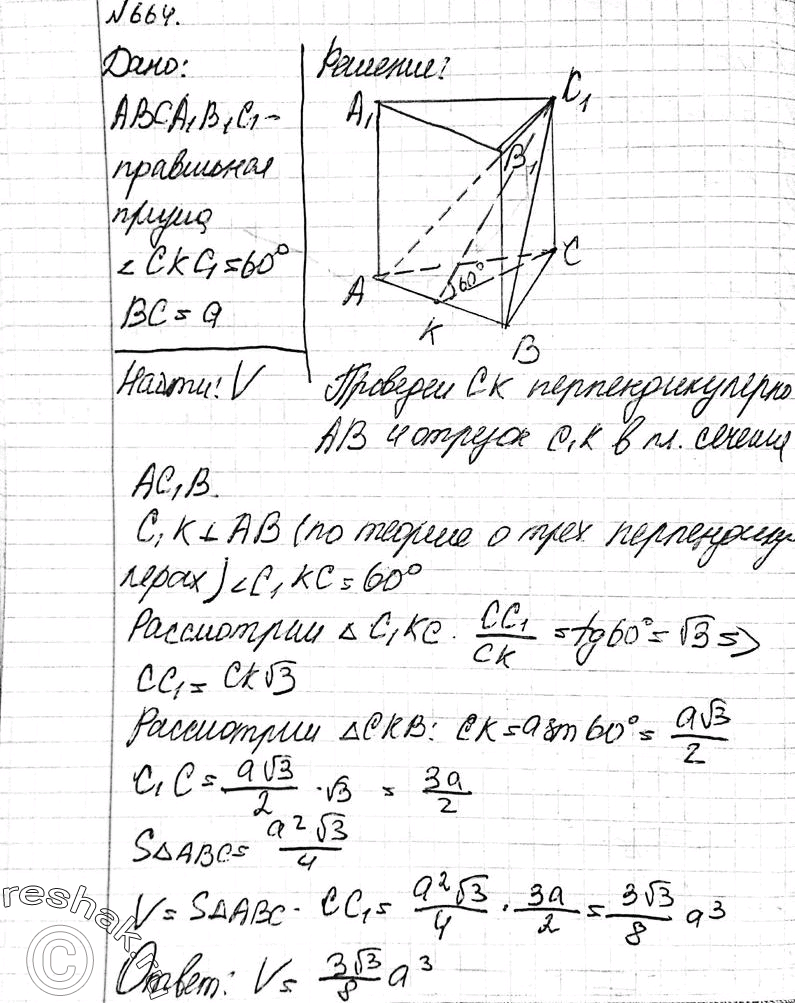 №664.
Дано:
ABCA₁B₁C₁ -
правильная
призма
∠CKC₁ = 60°
BC = a
Найти: V
Решение:
A₁
C₁
B₁
A
60°
C
K
B
Проведем CK перпендикулярно
AB и отрезок C₁K в пл. сечения
AC₁B.
C₁K ⊥ AB (по теореме о трех перпендику-
лярах) ∠C₁KC = 60°
Рассмотрим △C₁KC. CC₁/CK = tg60° = √3 =>
CC₁ = CK√3
Рассмотрим △CKB: CK = a sin 60° = a√3/2
C₁C = a√3/2 · √3 = 3a/2
S△ABC = a²√3/4
V = S△ABC · CC₁ = a²√3/4 · 3a/2 = 3√3/8 a³
Ответ: V = 3√3/8 a³
reshak
©